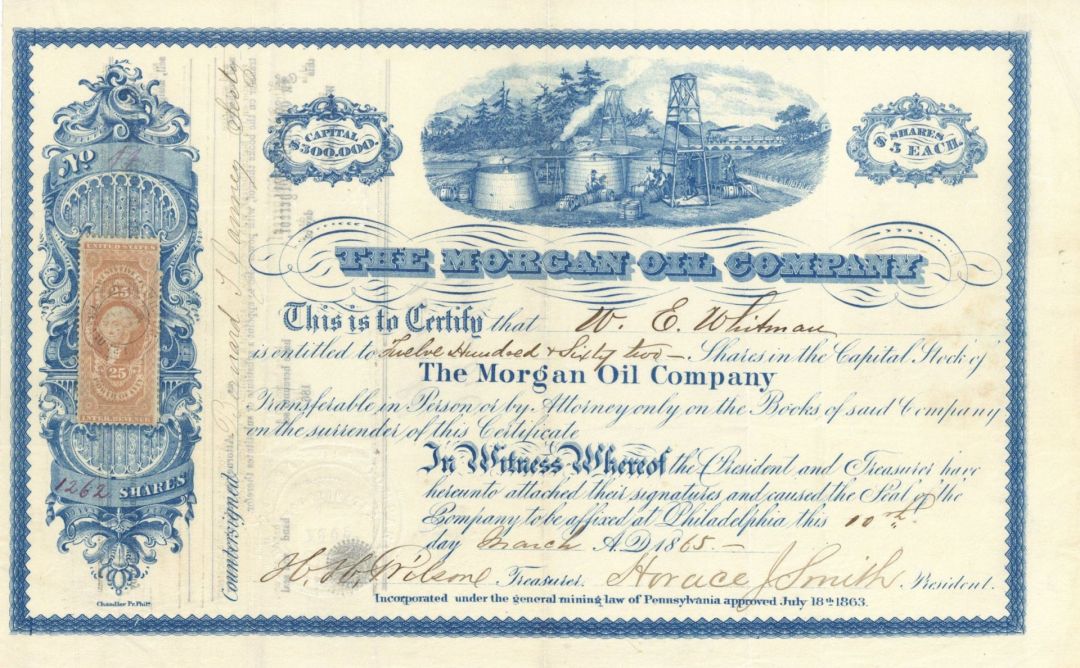 No
CAPITAL
$300.000.
SHARES
$5 EACH.
THE MORGAN OIL COMPANY
This is to Certify that W. E. Whitman
is entitled to Twelve Hundred & Sixty two — Shares in the Capital Stock of
The Morgan Oil Company
Transferable in Person or by Attorney only on the Books of said Company
on the surrender of this Certificate
In Witness Whereof the President and Treasurer have
hereunto attached their signatures and caused the Seal of the
Company to be affixed at Philadelphia this 10th
day March A.D. 1865.—
Treasurer. Horace J Smith President.
Incorporated under the general mining law of Pennsylvania approved July 18th 1863.
UNITED STATES
25
25
INTER. REVENUE
1262 SHARES
Countersigned
Chandler Pr. Phila